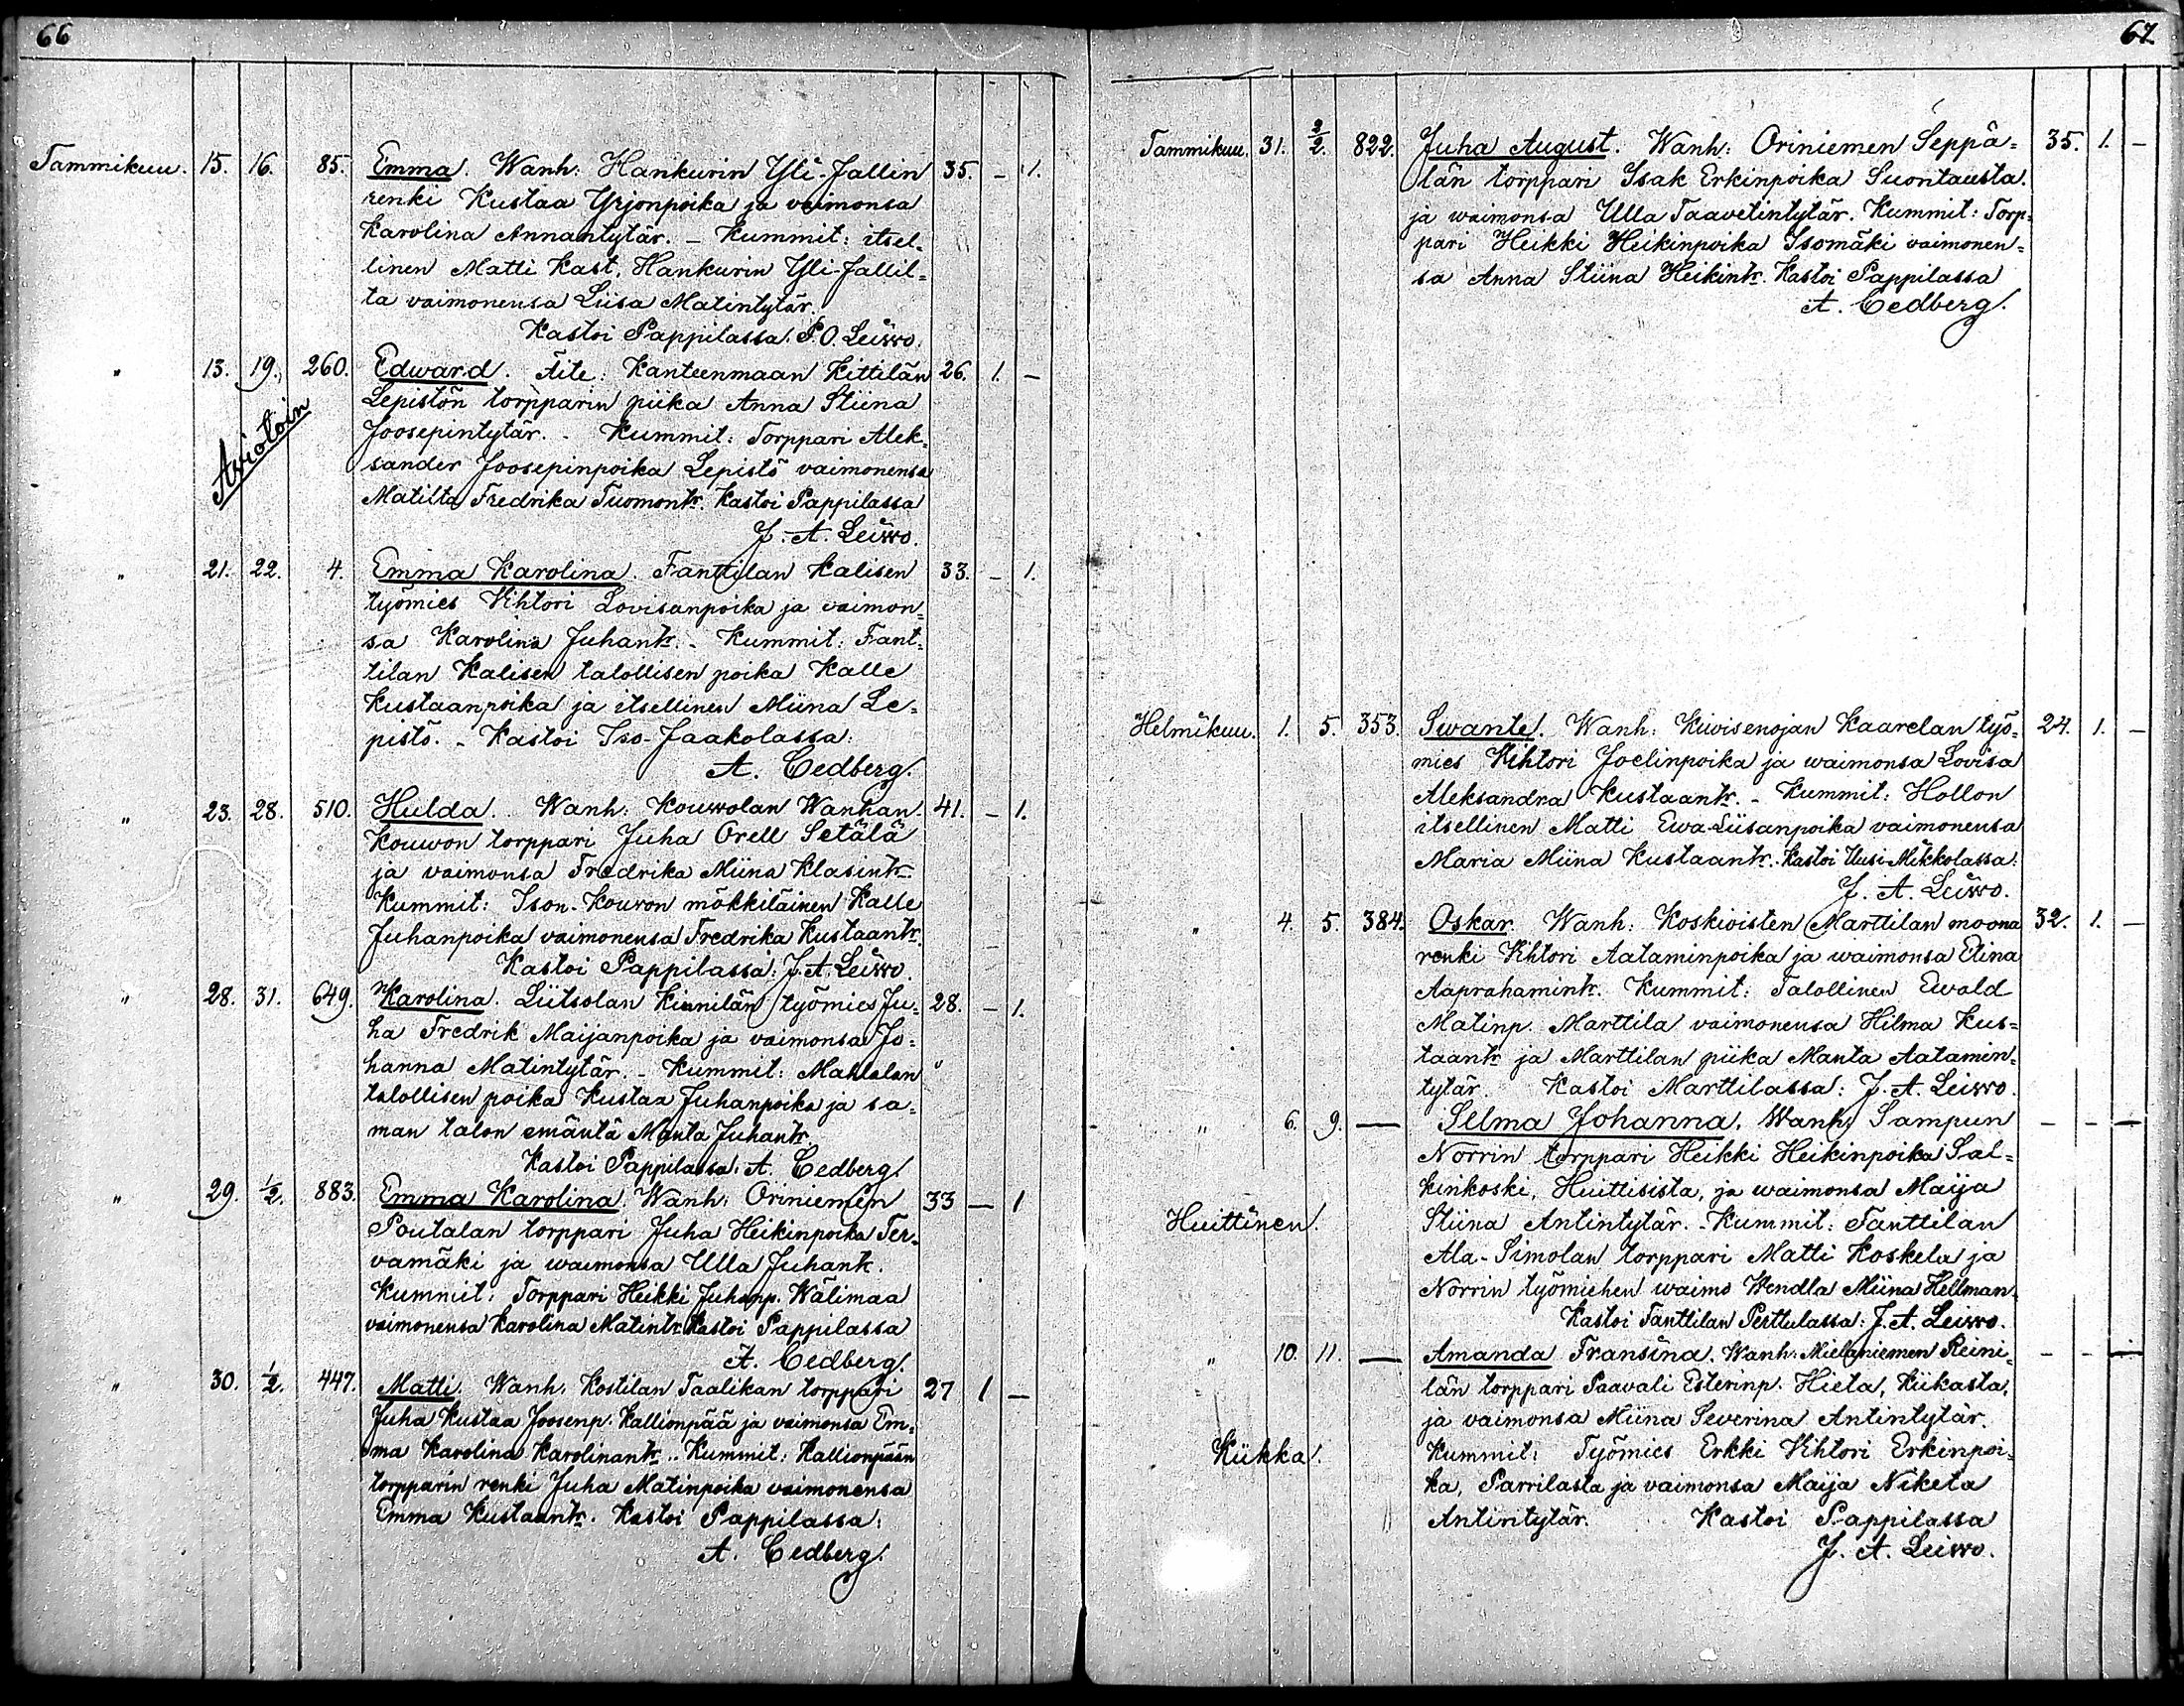 66
Tammikuu. 15. 16. 85. Emma. Wanh: Hankurin Yli-Jallin 35. – 1.
renki Kustaa Yrjönpoika ja vaimonsa
Karolina Annantytär. – Kummit: itsel-
linen Matti Kast. Hankurin Yli-Jallil-
ta vaimonensa Liisa Matintytär.
Kastoi Pappilassa: P. O. Leiwo.
" 13. 19. 260. Edward. Äite: Kanteenmaan Kittilän 26. 1. –
Lepistön torpparin piika Anna Stiina
Aviotoin
Joosepintytär. - Kummit: Torppari Alek-
sander Joosepinpoika Lepistö vaimonensa
Matilta Fredrika Tuomontr. Kastoi Pappilassa
J. A. Leiwo.
" 21. 22. 4. Emma Karolina. Fanttilan Kalisen 33. – 1.
työmies Vihtori Lovisanpoika ja vaimon-
sa Karolina Juhantr. - Kummit: Fant-
tilan Kalisen talollisen poika Kalle
Kustaanpoika ja itsellinen Miina Le-
pistö. - Kastoi Iso-Jaakolassa:
A. Cedberg.
" 23. 28. 510. Hulda. Wanh: Kouwolan Wanhan- 41. – 1.
Kouwon torppari Juha Orell Setälä
ja vaimonsa Fredrika Miina Klasintr.
Kummit: Ison-Kouvon mökkiläinen Kalle
Juhanpoika vaimonensa Fredrika Kustaantr.
Kastoi Pappilassa: J. A. Leiwo.
" 28. 31. 649. Karolina. Liitsolan Kinnilän työmies Ju- 28. – 1.
ha Fredrik Maijanpoika ja vaimonsa Jo-
hanna Matintytär. - Kummit: Mahlalan
talollisen poika Kustaa Juhanpoika ja sa-
man talon emäntä Manta Juhantr.
Kastoi Pappilassa: A. Cedberg.
" 29. 1/2. 883. Emma Karolina. Wanh: Oriniemen 33 – 1
Poutalan torppari Juha Heikinpoika Ter-
vamäki ja waimonsa Ulla Juhantr.
Kummit: Torppari Heikki Juhanp. Wälimaa
vaimonensa Karolina Matintr. Kastoi Pappilassa
A. Cedberg.
" 30. 1/2. 447. Matti. Wanh. Kostilan Taalikan torppari 27 1 –
Juha Kustaa Joosenp. Kallionpää ja vaimonsa Em-
ma Karolina Karolinantr. . Kummit: Kallionpään
torpparin renki Juha Matinpoika vaimonensa
Emma Kustaantr. Kastoi Pappilassa:
A. Cedberg.
67.
Tammikuu. 31. 2/2. 822. Juha August. Wanh: Oriniemen Seppä- 35. 1. –
län torppari Isak Erkinpoika Suontausta.
ja waimonsa Ulla Taavetintytär. Kummit: Torp-
pari Heikki Heikinpoika Isomäki vaimonen-
sa Anna Stiina Heikintr. Kastoi Pappilassa
A. Cedberg.
Helmikuu. 1. 5. 353. Swante. Wanh: Kiwisenojan Kaarelan työ- 24. 1. –
mies Vihtori Joelinpoika ja waimonsa Lovisa
Aleksandra Kustaantr. - Kummit: Hollon
itsellinen Matti Ewa-Liisanpoika vaimonensa
Maria Miina Kustaantr. Kastoi Uusi-Mikkolassa:
J. A. Leiwo.
" 4. 5. 384. Oskar. Wanh: Koskioisten Marttilan moona 32. 1. –
renki Vihtori Aataminpoika ja waimonsa Elina
Aaprahamintr. Kummit: Talollinen Ewald
Matinp. Marttila vaimonensa Hilma Kus-
taantr. ja Marttilan piika Manta Aatamin-
tytär. Kastoi Marttilassa: J. A. Leiwo.
" 6. 9. — Selma Johanna. Wanh: Sampun – – –
Norrin torppari Heikki Heikinpoika Sal-
kinkoski, Huittisista, ja waimonsa Maija
Huittinen. Stiina Antintytär. - Kummit: Fanttilan
Ala-Simolan torppari Matti Koskela ja
Norrin työmiehen waimo Wendla Miina Hellman.
Kastoi Fanttilan Perttulassa: J. A. Leiwo.
" 10. 11. — Amanda Fransina. Wanh: Mielaniemen Reini- – – –
län torppari Paavali Esterinp. Hieta, Kiikasta,
ja vaimonsa Miina Severina Antintytär.
Kiikka. Kummit: Työmies Erkki Vihtori Erkinpoi-
ka, Parrilasta ja vaimonsa Maija Niketa
Antintytär. Kastoi Pappilassa
J. A. Leiwo.